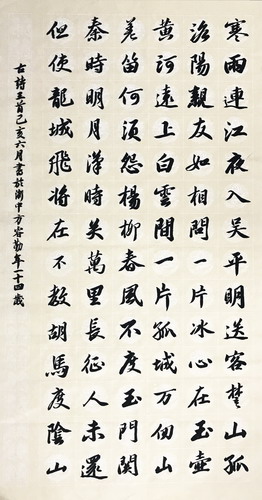 寒雨連江夜入吳平明送客楚山孤
洛陽親友如相問一片冰心在玉壺
黄河遠上白雲間一片孤城万仞山
羌笛何須怨楊柳春風不度玉門関
秦時明月漢時关萬里長征人未還
但使龍城飛將在不教胡馬度陰山
古詩三首己亥六月書於浙中方容勤年一十四歲